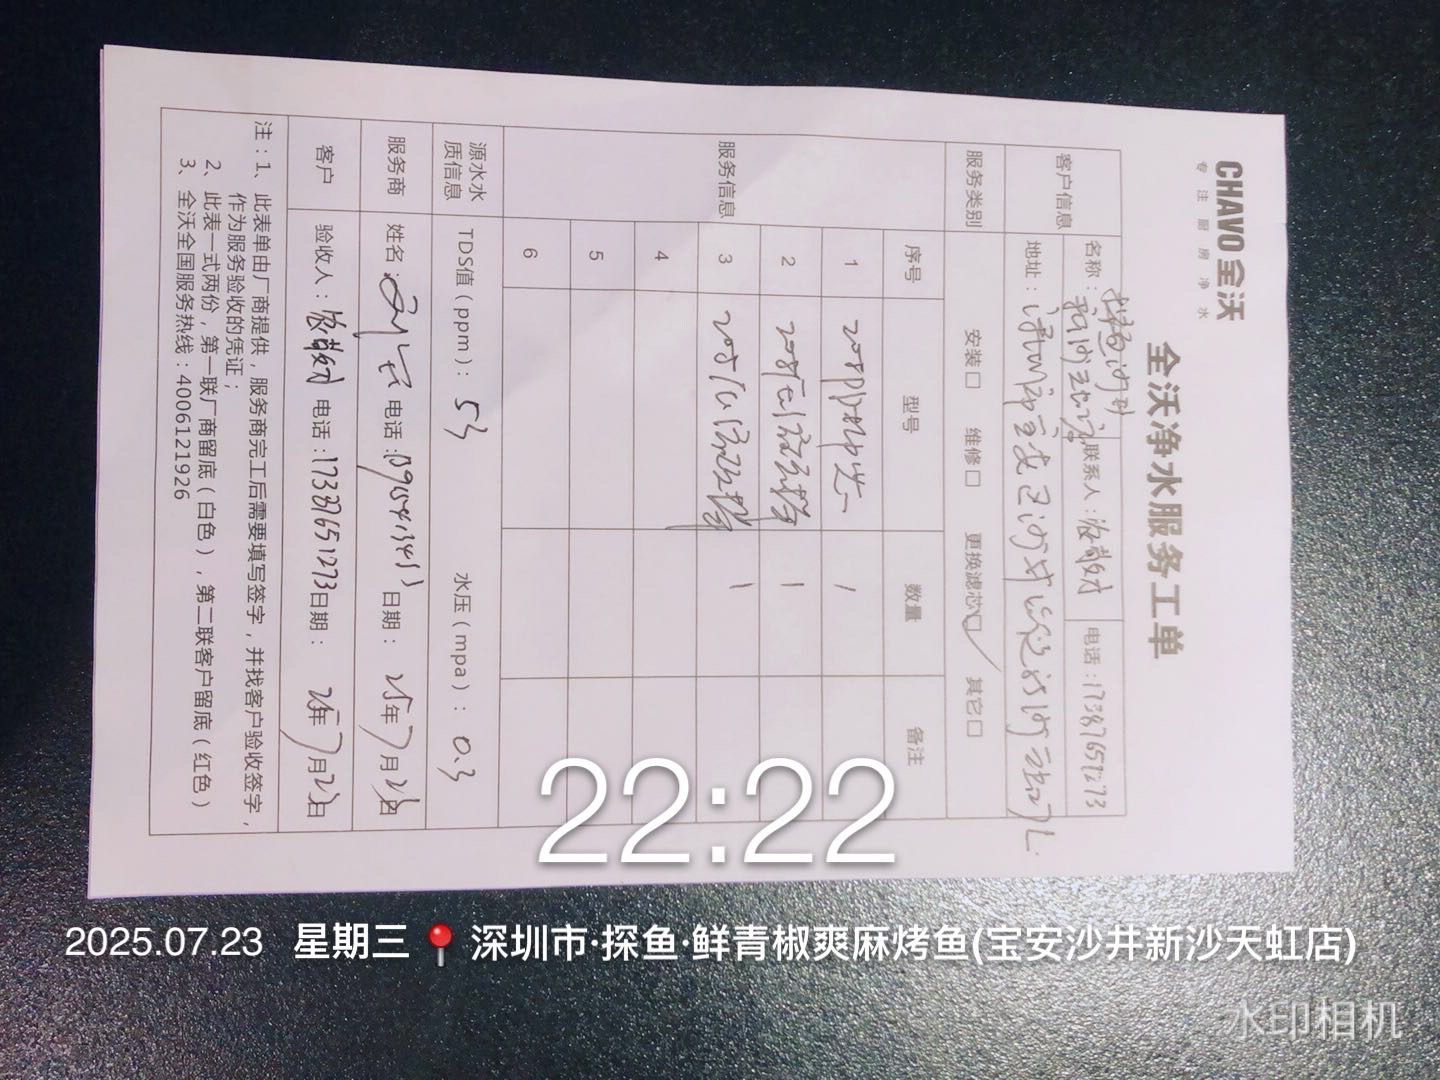 CHAVO 全沃
专注厨房净水
全沃净水服务工单
客户信息
名称： 联系人： 电话：17387651273
地址：
服务类别 安装□ 维修□ 更换滤芯□✓ 其它□
服务信息
序号 型号 数量 备注
1 1
2 1
3 1
4
5
6
源水水质信息 TDS值（ppm）：53 水压（mpa）：0.3
服务商 姓名： 电话： 日期：25年7月23日
客户 验收人： 电话：17387651273 日期：25年7月23日
注：1、此表单由厂商提供，服务商完工后需要填写签字，并找客户验收签字，
作为服务验收的凭证；
2、此表一式两份，第一联厂商留底（白色），第二联客户留底（红色）
3、全沃全国服务热线：4006121926
22:22
2025.07.23 星期三 深圳市·探鱼·鲜青椒爽麻烤鱼(宝安沙井新沙天虹店)
水印相机